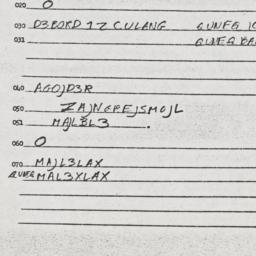 020 O
030 D3BORD 1Z CULANG GUNFG
031 GUNFG
040 AGOJD3R
050 ZAJNGREJSMOJL
051 MAJLBL3.
060 O
070 MAJL3LAX
GUNFG MAL3XLAX